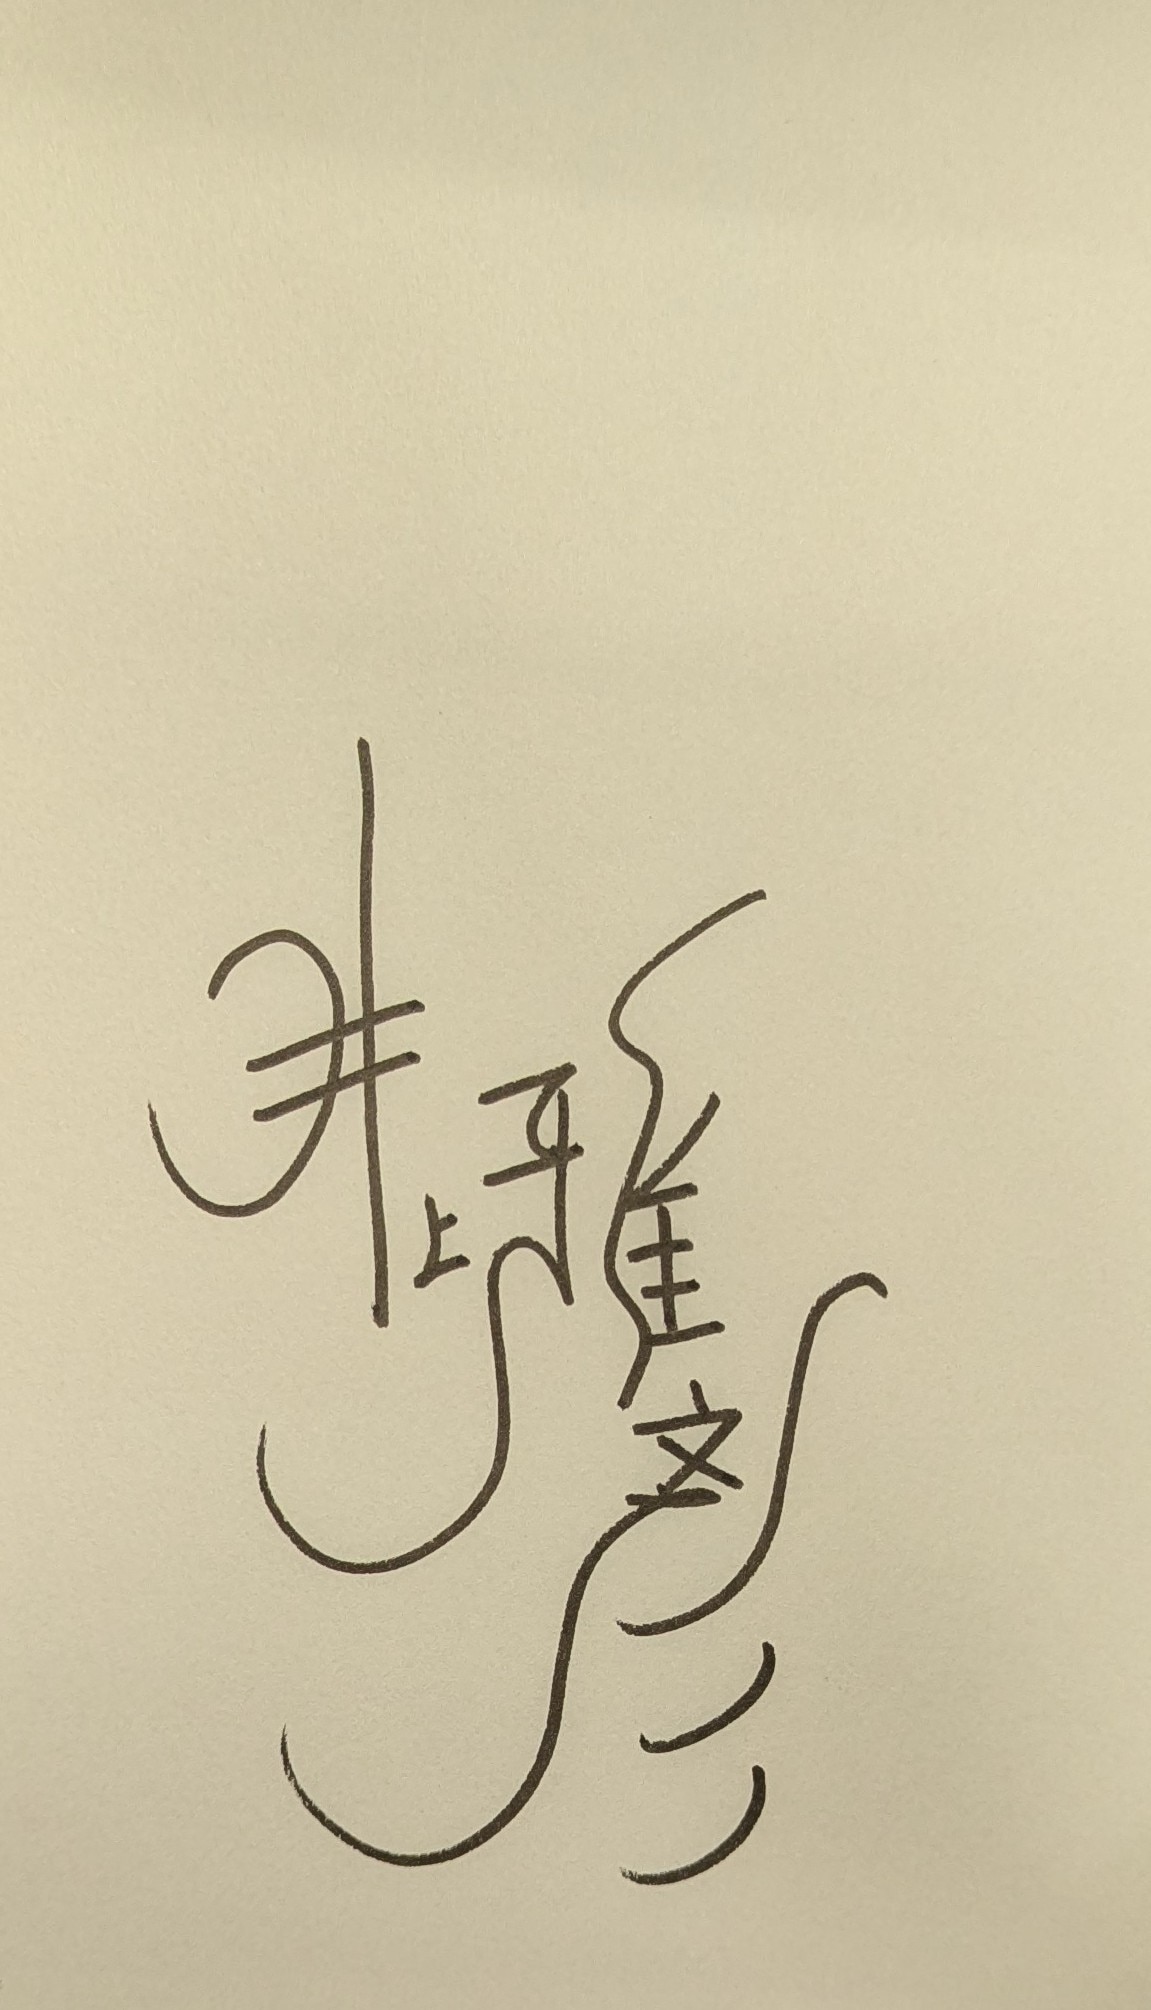 井上雅彦